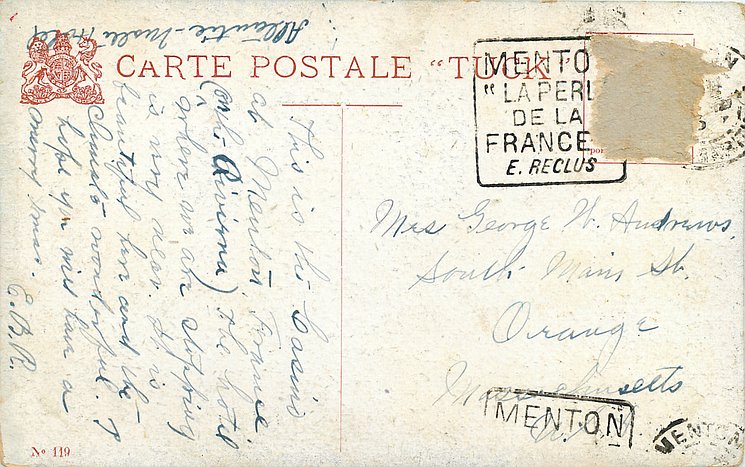 Atlantic-Nusli Hotel
CARTE POSTALE "TUCK"
This is the Casino
at Menton, France
(on the Riviera) the hotel
where we are stopping
is very near. It is
beautiful here and the
climate wonderful. I
hope you will have a
merry Xmas.
E.B.R.
MENTO
"LA PERL
DE LA
FRANCE
E. RECLUS
Mrs George W. Andrews,
South Main St.
Orange
Massachusetts
MENTON
MENTON
No 119